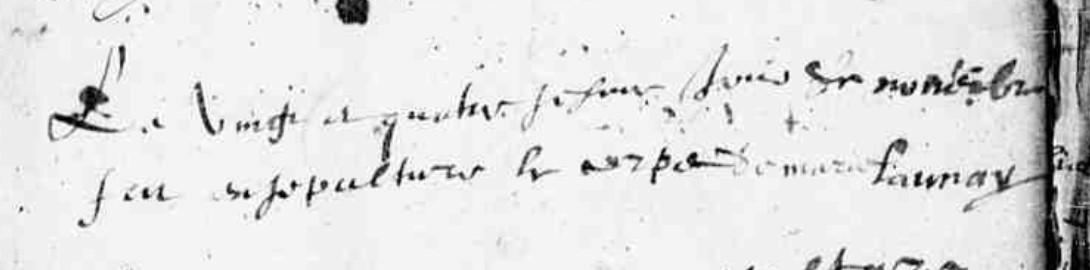 Le vingt et quatriesme jour de novembre
fut ensepulture le corps de marc Launay